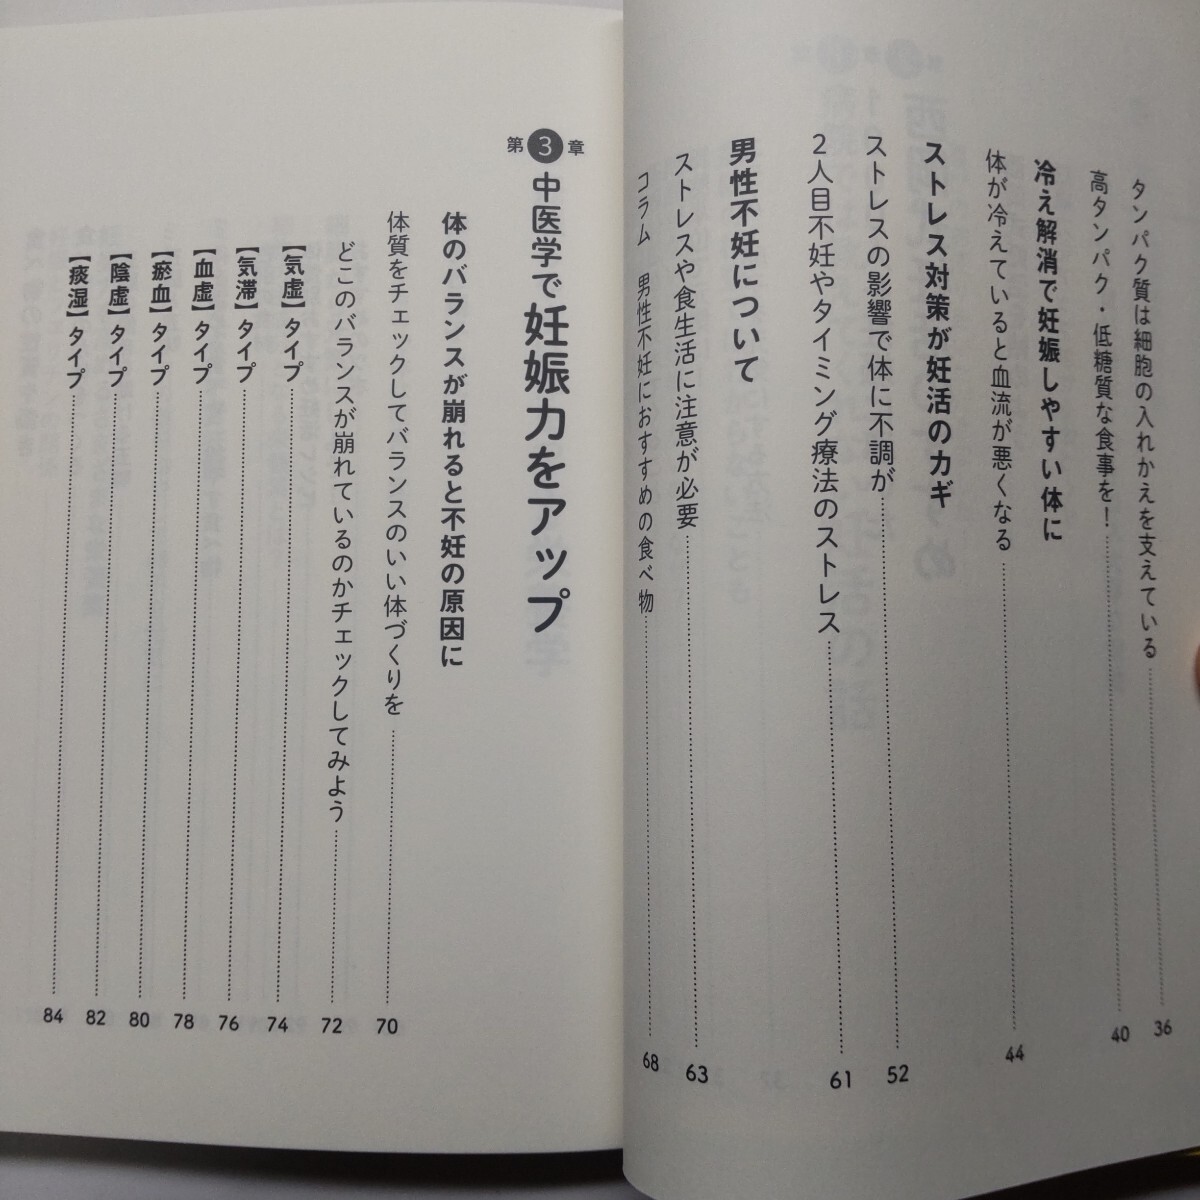 タンパク質は細胞の入れかえを支えている 36
高タンパク・低糖質な食事を！ 40
冷え解消で妊娠しやすい体に
体が冷えていると血流が悪くなる 44
ストレス対策が妊活のカギ
ストレスの影響で体に不調が 52
2人目不妊やタイミング療法のストレス 61
男性不妊について
ストレスや食生活に注意が必要 63
コラム 男性不妊におすすめの食べ物 68
第3章 中医学で妊娠力をアップ
体のバランスが崩れると不妊の原因に
体質をチェックしてバランスのいい体づくりを 70
どこのバランスが崩れているのかチェックしてみよう 72
【気虚】タイプ 74
【気滞】タイプ 76
【血虚】タイプ 78
【瘀血】タイプ 80
【陰虚】タイプ 82
【痰湿】タイプ 84